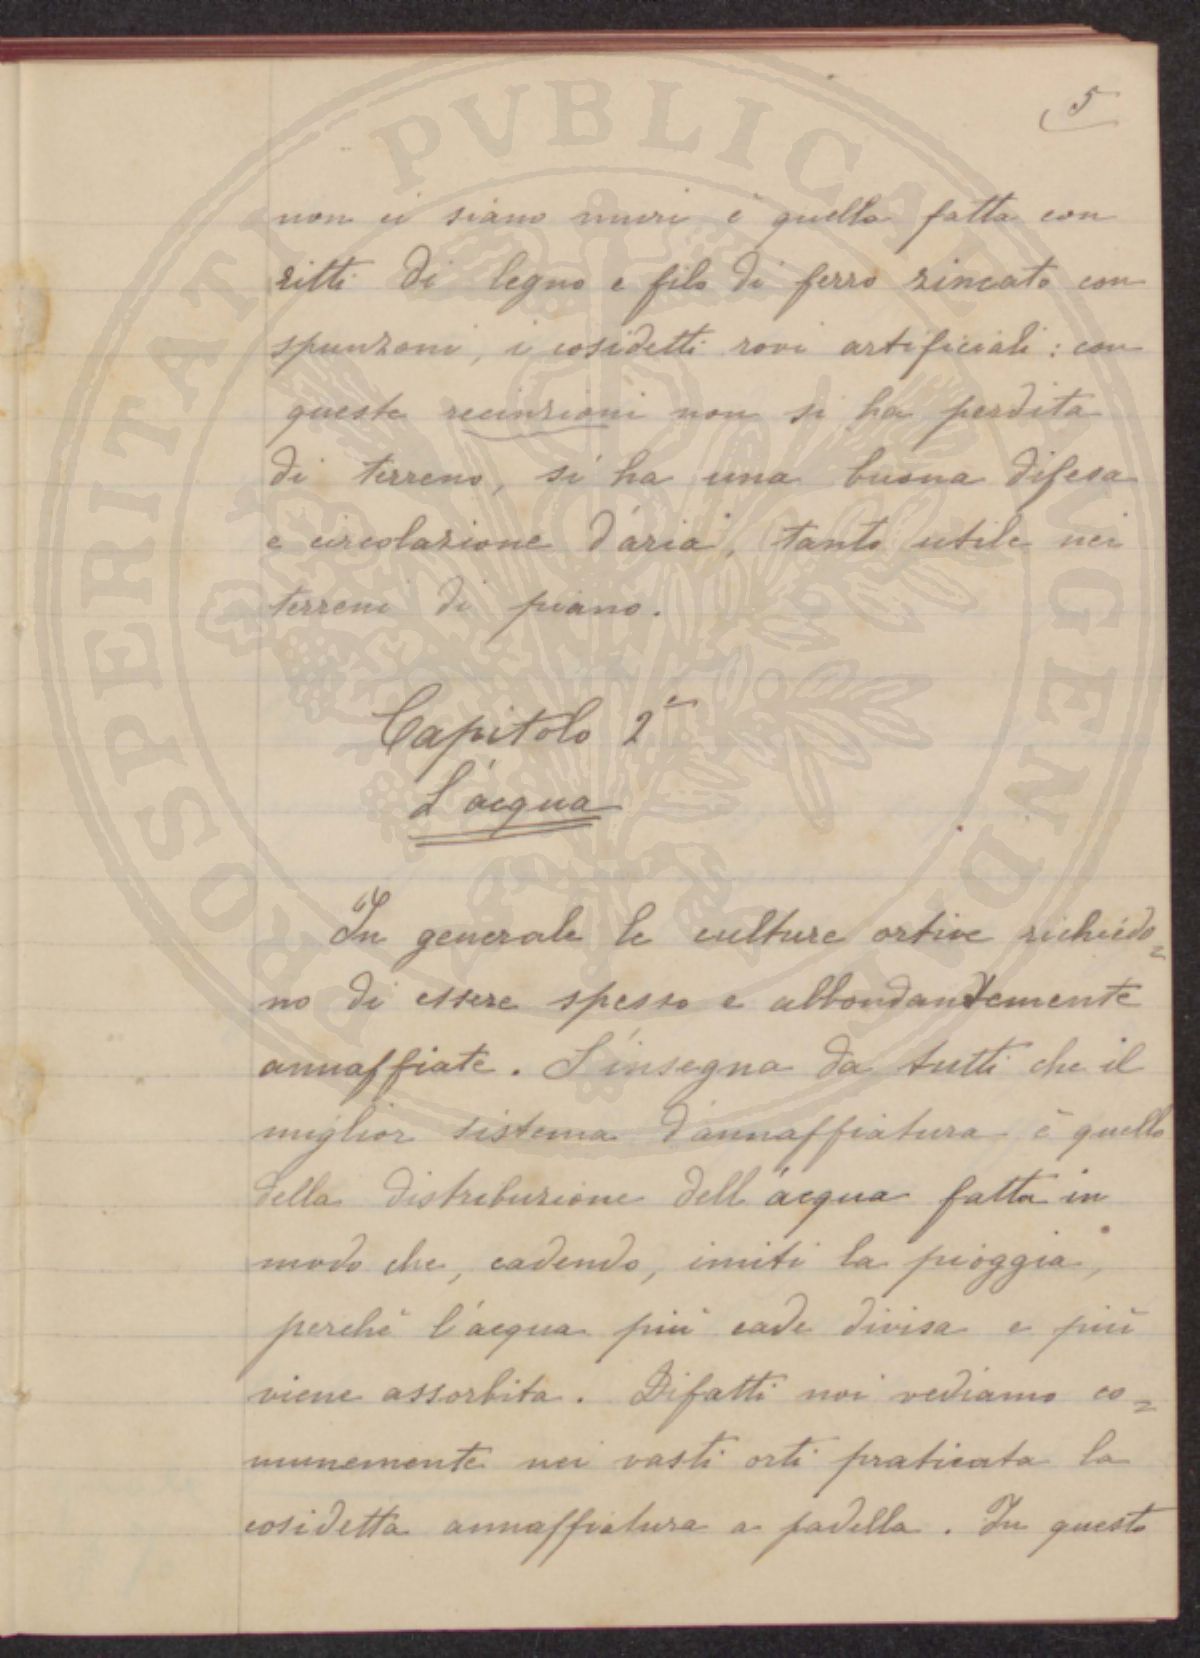 5
non ci siano muri è quella fatta con
ritti di legno e filo di ferro zincato con
spunzoni, i cosidetti rovi artificiali: con
queste recinzioni non si ha perdita
di terreno, si ha una buona difesa
e circolazione d'aria, tanto utile nei
terreni di piano.
Capitolo 2º
L'acqua
In generale le culture ortive richiedo=
no di essere spesso e abbondantemente
annaffiate. S'insegna da tutti che il
miglior sistema d'annaffiatura è quello
della distribuzione dell'acqua fatta in
modo che, cadendo, imiti la pioggia,
perchè l'acqua più cade divisa e più
viene assorbita. Difatti noi vediamo co=
munemente nei vasti orti praticata la
cosidetta annaffiatura a padella. In questo
PROSPERITATI PVBLICAE AVGENDAE